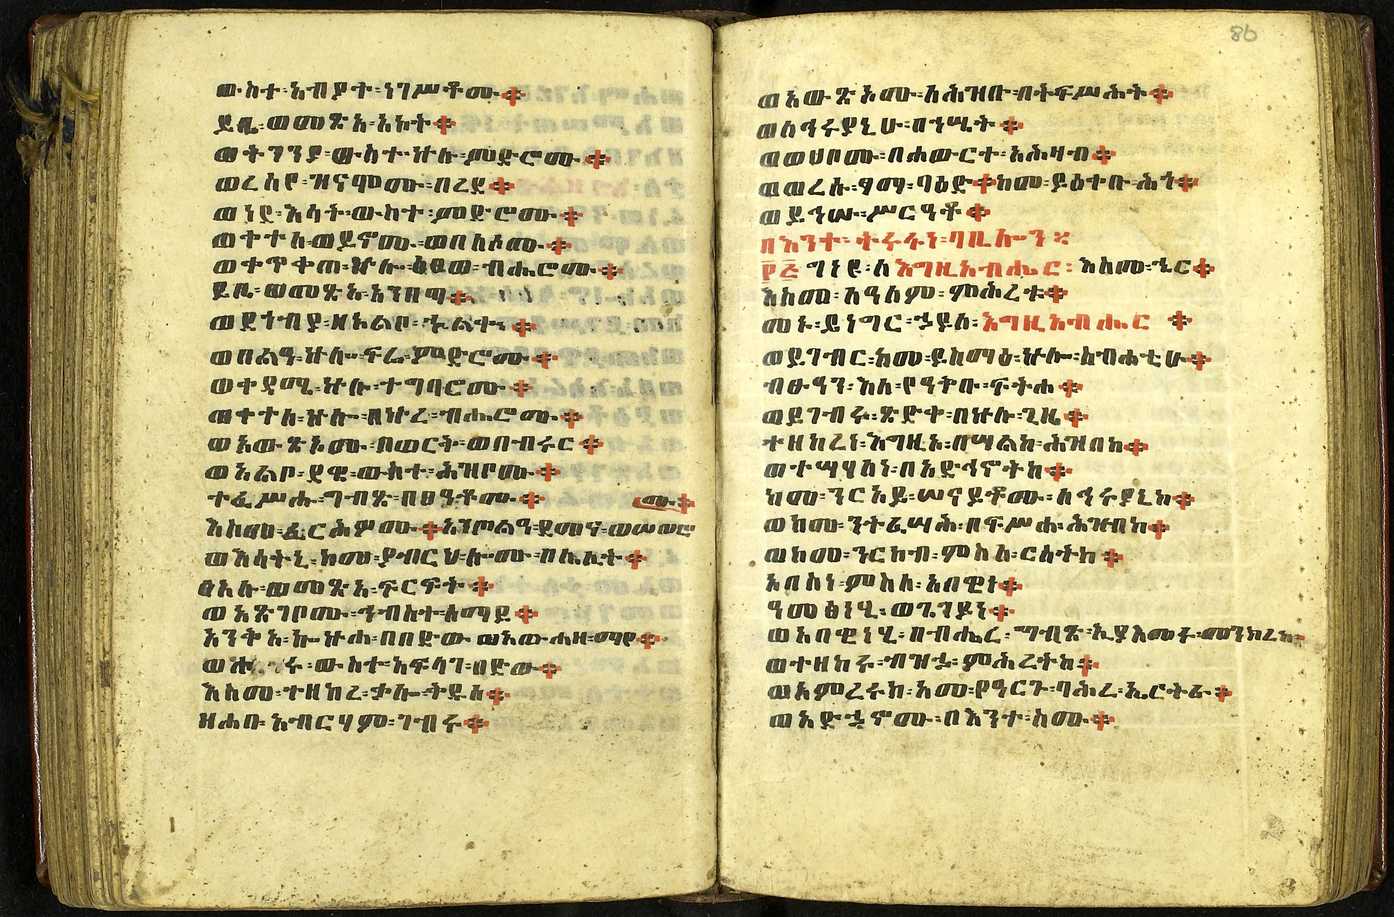 ውስተ፡አብያተ፡ነገሥቶሙ።
ይቤ፡ወመጽአ፡አኮት።
ወትንንያ፡ውስተ፡ኵሉ፡ምድሮሙ።
ወረሰየ፡ዝናሞሙ፡በረደ።
ወነደ፡እሳት፡ውስተ፡ምድሮሙ።
ወቀተለ፡ወይኖሙ፡ወበለሶሙ።
ወቀጥቀጠ፡ኵሎ፡ዕፀወ፡ብሔሮሙ።
ይቤ፡ወመጽአ፡አንበጣ።
ወደጎብያ፡ዘአልቦ፡ኍልቈ።
ወበልዓ፡ኵሎ፡ፍሬ፡ምድሮሙ።
ወቀዳሚ፡ኵሉ፡ተግባሮሙ።
ወቀተለ፡ኵሎ፡በኵረ፡ብሔሮሙ።
ወአውጽኦሙ፡በወርቅ፡ወበብሩር።
ወአልቦ፡ደዌ፡ውስተ፡ሕዝቦሙ።
ተፈሥሐ፡ግብጽ፡በፀዓቶሙ።
ሙ።
እስመ፡ፈርሕዎሙ።አንጦልዓ፡ደመና፡ወሠወሮ
ወእሳትኒ፡ከመ፡ያብርህ፡ሎሙ፡በሌሊት።
ሰአሉ፡ወመጽአ፡ፍርፍት።
ወአጽገቦሙ፡ኅብስተ፡ሰማይ።
አንቅአ፡ኰኵሐ፡በበድው፡ወአውሐዘ፡ማየ።
ውስተ፡አፍላገ፡በድው።
እስመ፡ተዘከረ፡ቃሎ፡ቅዱሰ።
ዘሐቡ፡አብርሃም፡ገብሩ።
86
ወአውጽኦሙ፡ለሕዝቡ፡በትፍሥሕት።
ወለኅሩያኒሁ፡በኀሤት።
ወወሀቦሙ፡በሐውርተ፡አሕዛብ።
ወወረሱ፡ፃማ፡ባዕድ።ከመ፡ይዕቀቡ፡ሕጎ።
ወይኅሡ፡ሥርዓቶ።
በእንተ፡ተሩፋነ፡ባቢሎን።
፻፭ ግነዩ፡ለእግዚአብሔር፡እስመ፡ኄር።
እስመ፡ለዓለም፡ምሕረቱ።
መኑ፡ይነግር፡ኃይለ፡እግዚአብሔር።
ወይገብር፡ከመ፡ይስማዕ፡ኵሎ፡ስብሐቲሁ።
ብፁዓን፡እለ፡የዓቅቡ፡ፍትሐ።
ወይገብሩ፡ጽድቀ፡በኵሉ፡ጊዜ።
ተዘከረነ፡እግዚኦ፡በሣህልከ፡ሕዝበከ።
ወተሣሃለነ፡በአድኅኖትከ።
ከመ፡ንርአይ፡ሠናይቶሙ፡ለኅሩያኒከ።
ወከመ፡ንተፈሣሕ፡በፍሥሐ፡ሕዝብከ።
ወከመ፡ንርከብ፡ምስለ፡ርስትከ።
አበስነ፡ምስለ፡አበዊነ።
ዓመፅነሂ፡ወጌገይነ።
ወአበዊነሂ፡በብሔረ፡ግብጽ፡ኢያእመሩ፡መንክረከ።
ወተዘከሩ፡ብዝኃ፡ምሕረትከ።
ወአምረሩከ፡አመ፡የዓርጉ፡ባሕረ፡ኤርትራ።
ወአድኃኖሙ፡በእንተ፡ስሙ።